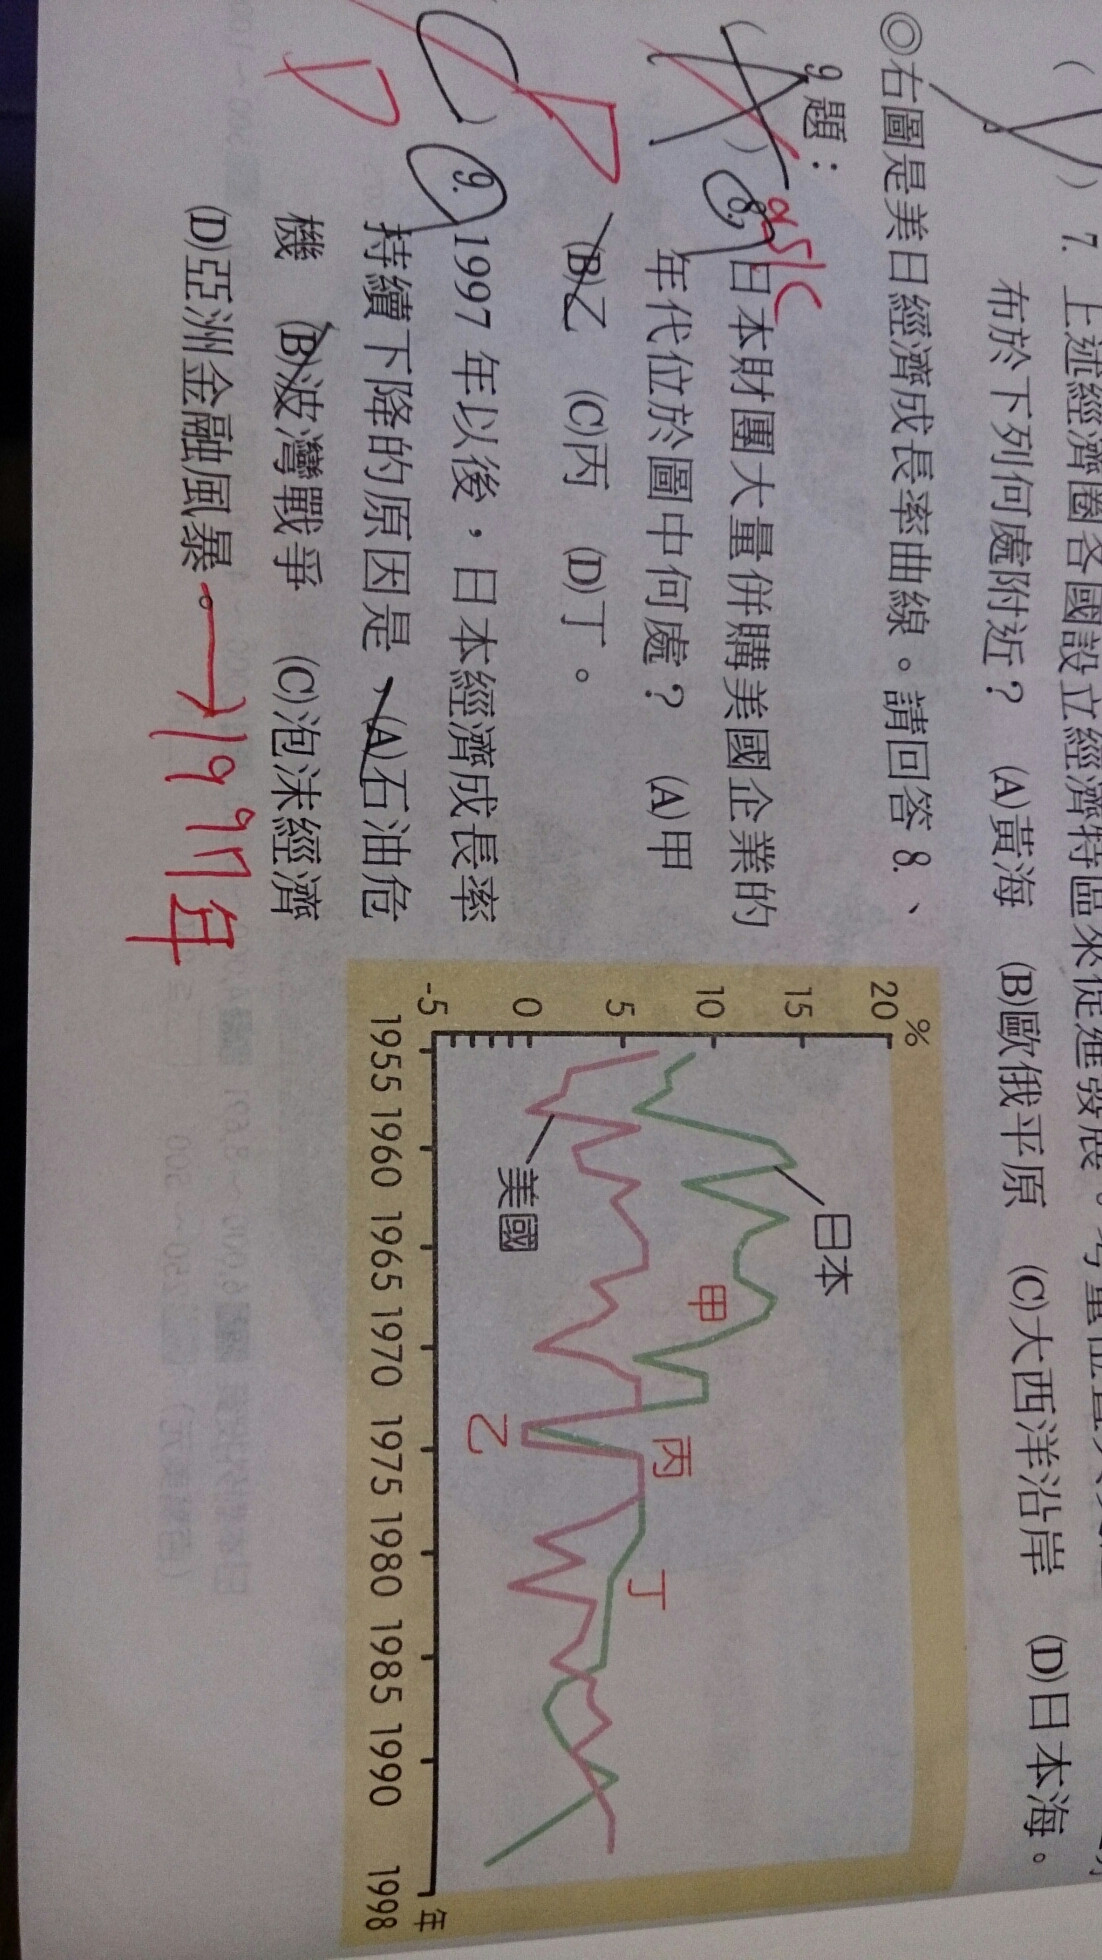 ( ) 7. 上述經濟圈各國設立經濟特區來促進發展。考量位置
布於下列何處附近? (A)黃海 (B)歐俄平原 (C)大西洋沿岸 (D)日本海。
◎右圖是美日經濟成長率曲線。請回答 8. 、
9 題:
(A) 8. 日本財團大量併購美國企業的
年代位於圖中何處? (A)甲
(B)乙 (C)丙 (D)丁。
D
(C) 9. 1997 年以後,日本經濟成長率
持續下降的原因是 (A)石油危
機 (B)波灣戰爭 (C)泡沫經濟
(D)亞洲金融風暴。→1997年
D
%
20
15
10
5
0
-5
日本
美國
甲
乙
丙
丁
1955 1960 1965 1970 1975 1980 1985 1990 1998 年